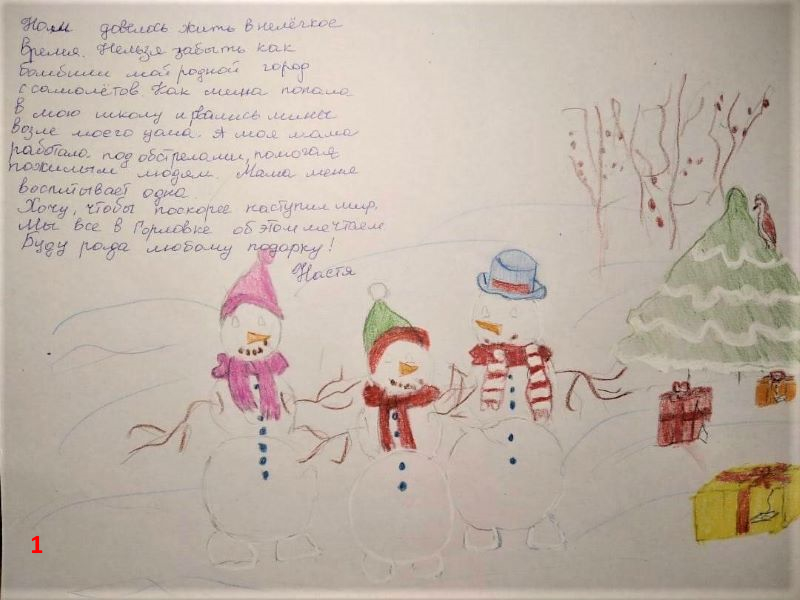 Нам довелось жить в нелёгкое
время. Нельзя забыть как
бомбили мой родной город
с самолётов. Как мина попала
в мою школу и рвались мины
возле моего дома. А моя мама
работала под обстрелами, помогая
пожилым людям. Мама меня
воспитывает одна.
Хочу, чтобы поскорее наступил мир.
Мы все в Горловке об этом мечтаем.
Буду рада любому подарку!
Настя
1